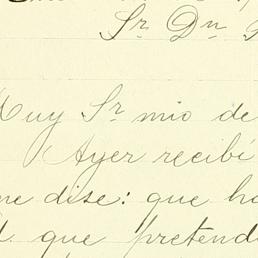 Sr. Dn.
Muy Sr. mio de
Ayer recibí
me dise: que ha
que pretend